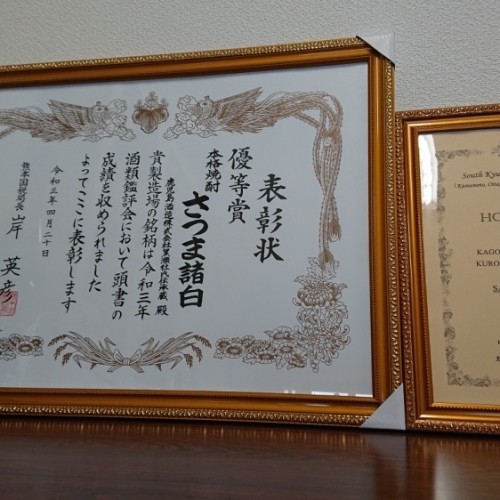 表彰状
優等賞
本格焼酎
さつま諸白
鹿児島酒造株式会社黒瀬杜氏伝承蔵 殿
貴製造場の銘柄は令和三年
酒類鑑評会において頭書の
成績を収められました
よってここに表彰します
令和三年四月二十日
熊本国税局長 岸 英彦
South Kyu
(Kumamoto, Oita,
HO
KAGO
KURO
SA